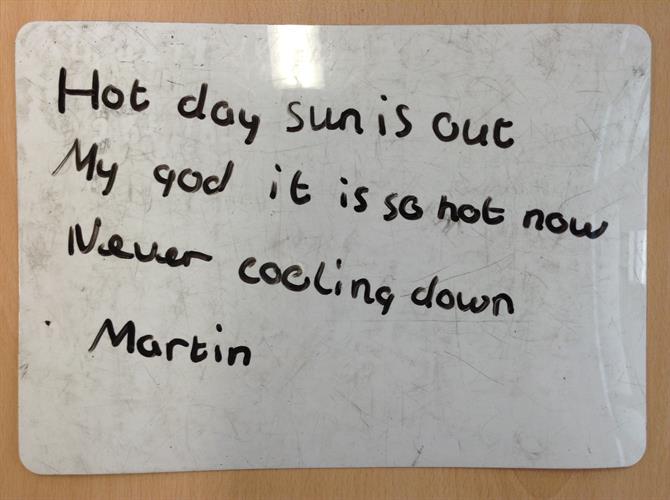 Hot day sun is out
My god it is so hot now
Never cooling down
Martin